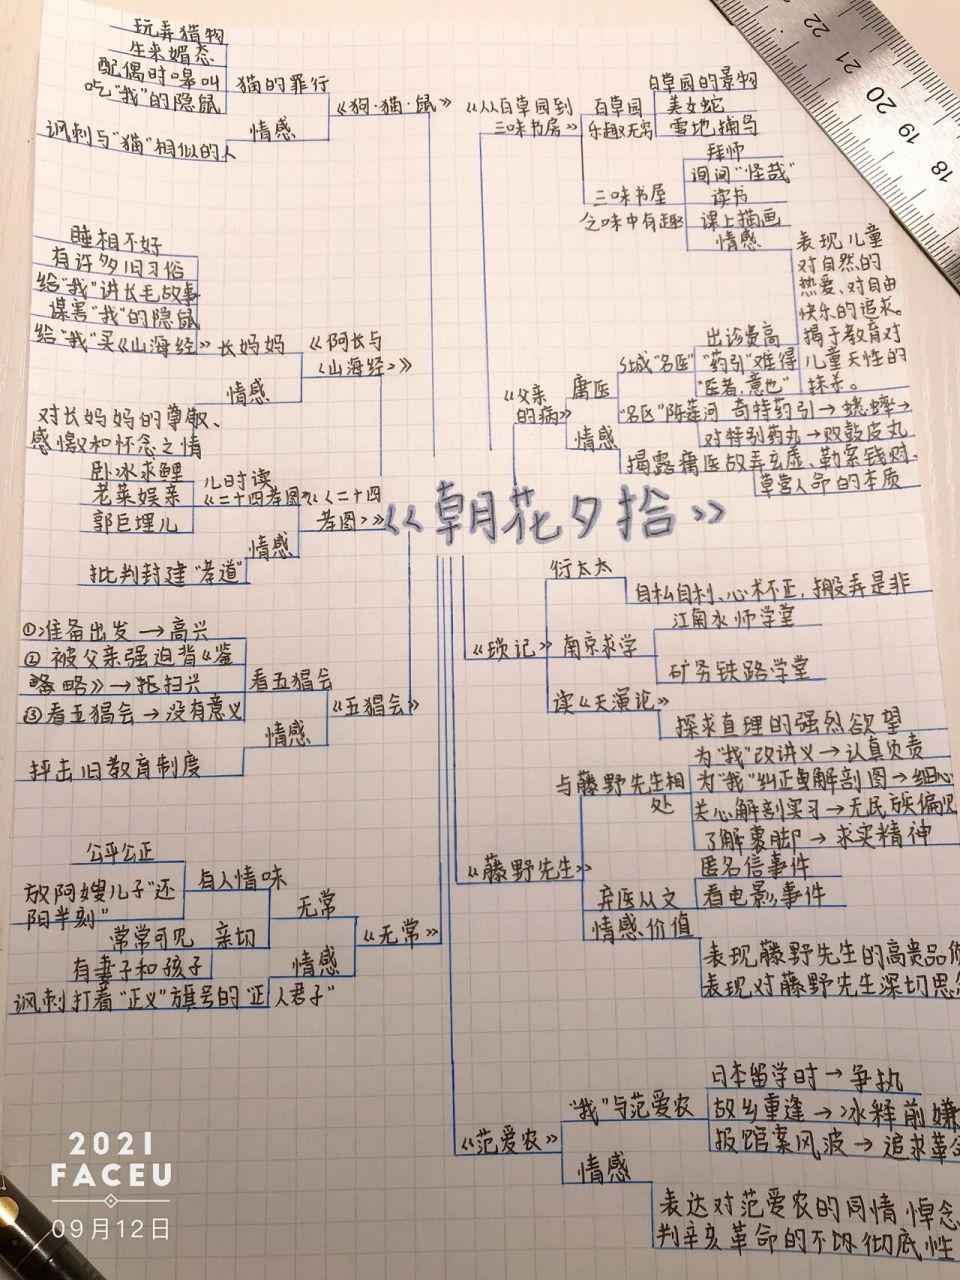 玩弄猎物
生来媚态
配偶时嗥叫
吃"我"的隐鼠
猫的罪行
情感
讽刺与"猫"相似的人
《狗·猫·鼠》
睡相不好
有许多旧习俗
给"我"讲长毛故事
谋害"我"的隐鼠
给"我"买《山海经》
长妈妈
情感
《阿长与
《山海经》》
对长妈妈的尊敬、
感激和怀念之情
卧冰求鲤
老莱娱亲
郭巨埋儿
儿时读
《二十四孝图》
情感
批判封建"孝道"
《〈二十四
孝图〉》
①准备出发→高兴
②被父亲强迫背《鉴
略》→扫兴
③看五猖会→没有意义
看五猖会
情感
抨击旧教育制度
《五猖会》
公平公正
放阿嫂儿子"还
阳半刻"
有人情味
常常可见
有妻子和孩子
亲切
无常
情感
讽刺打着"正义"旗号的"正人君子"
《无常》
《朝花夕拾》
《从百草园到
三味书屋》
百草园
乐趣无穷
百草园的景物
美女蛇
雪地捕鸟
三味书屋
乏味中有趣
拜师
询问"怪哉"
读书
课上描画
情感
表现儿童
对自然的
热爱、对自由
快乐的追求。
揭于教育对
儿童天性的
抹杀。
《父亲
的病》
庸医
情感
S城"名医"
出诊费高
"药引"难得
"医者,意也"
"名医"陈莲河
奇特药引→蟋蟀→
对特别药丸→败鼓皮丸
揭露庸医故弄玄虚、勒索钱财、
草营人命的本质
《锁记》
衍太太
自私自利、心术不正,搬弄是非
南京求学
江南水师学堂
矿务铁路学堂
读《天演论》
探求真理的强烈欲望
《藤野先生》
与藤野先生相
处
为"我"改讲义→认真负责
为"我"纠正解剖图→细心
关心解剖实习→无民族偏见
了解裹脚→求实精神
弃医从文
匿名信事件
看电影事件
情感价值
表现藤野先生的高贵品
表现对藤野先生深切思
《范爱农》
"我"与范爱农
日本留学时→争执
故乡重逢→冰释前嫌
报馆案风波→追求革
情感
表达对范爱农的同情悼念
判辛亥革命的不彻底性
18 19 20 21 22
2021
FACEU
09月12日